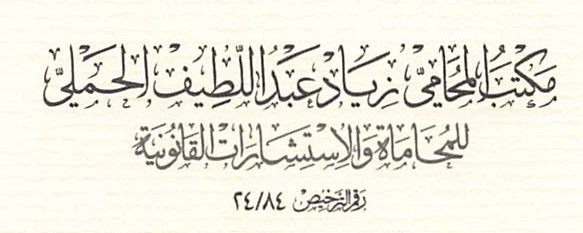 مَكْتَبُ المُحَامِيّ زِيَاد عَبْدُ اللَّطِيفْ الحَمَليّ
لِلمُحَامَاةِ وَالإِسْتِشَارَاتِ القَانُونِيَّةِ
رقم الترخيص ٢٤/٨٤